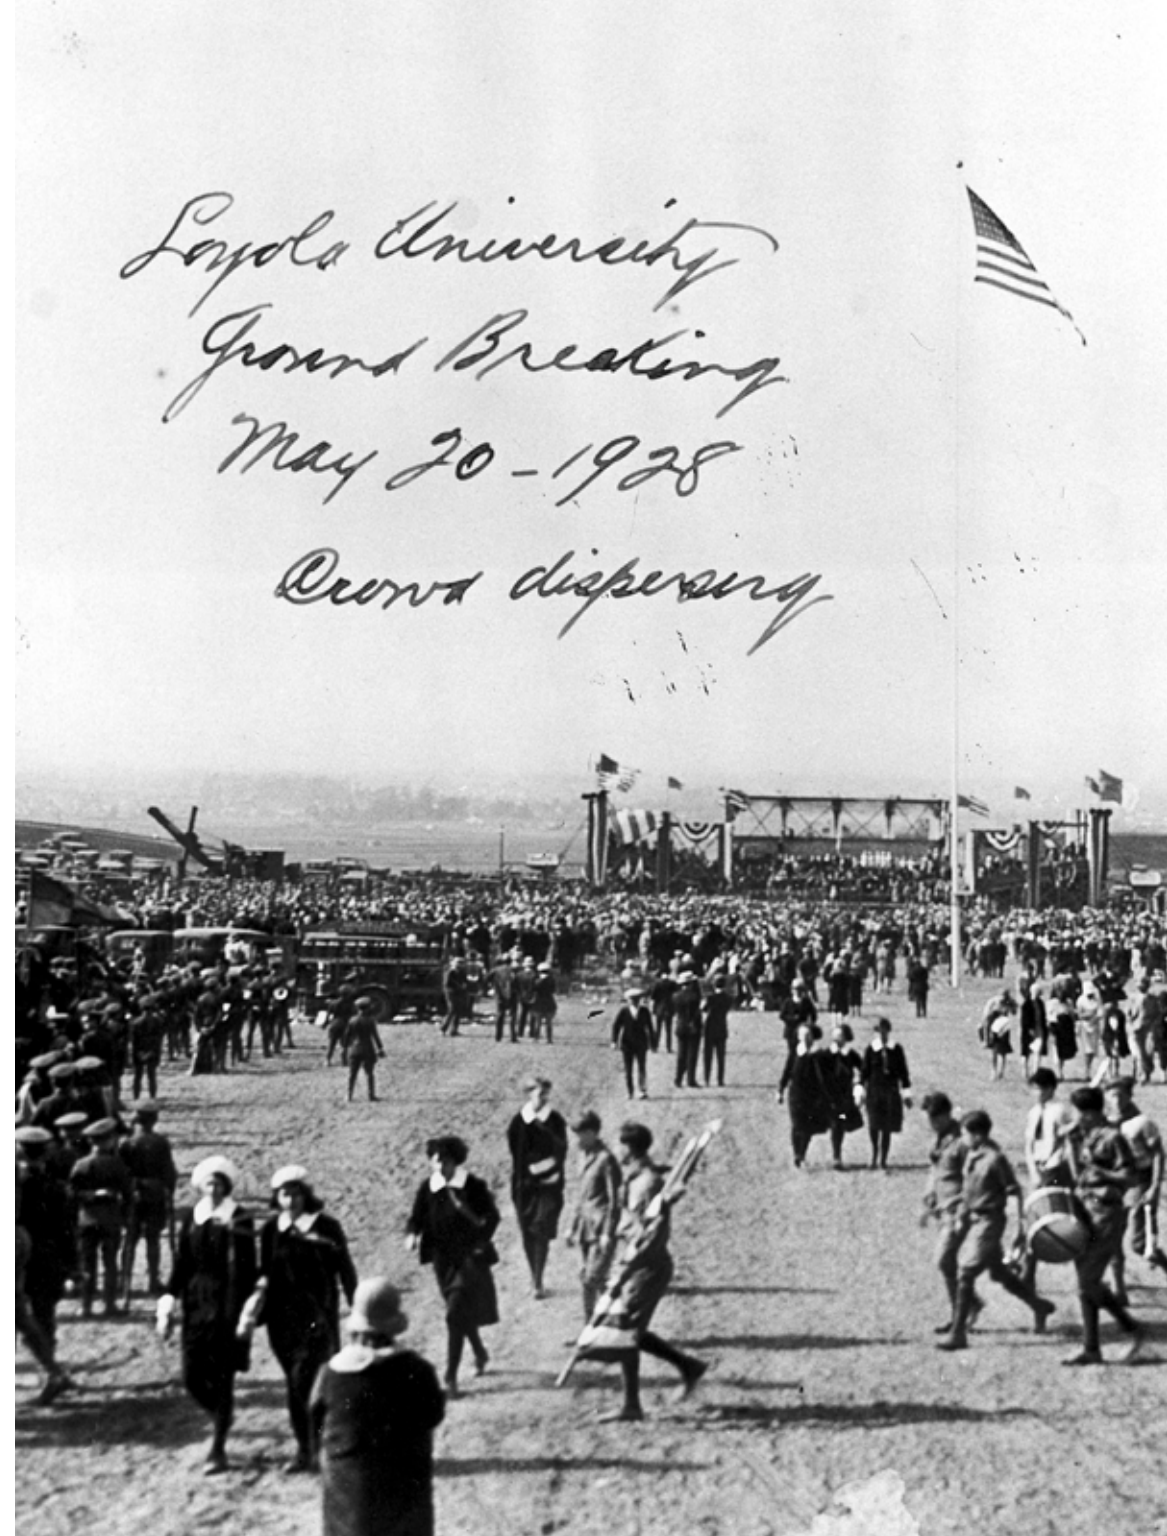 Loyola University
Ground Breaking
May 20-1928
Crowd dispersing